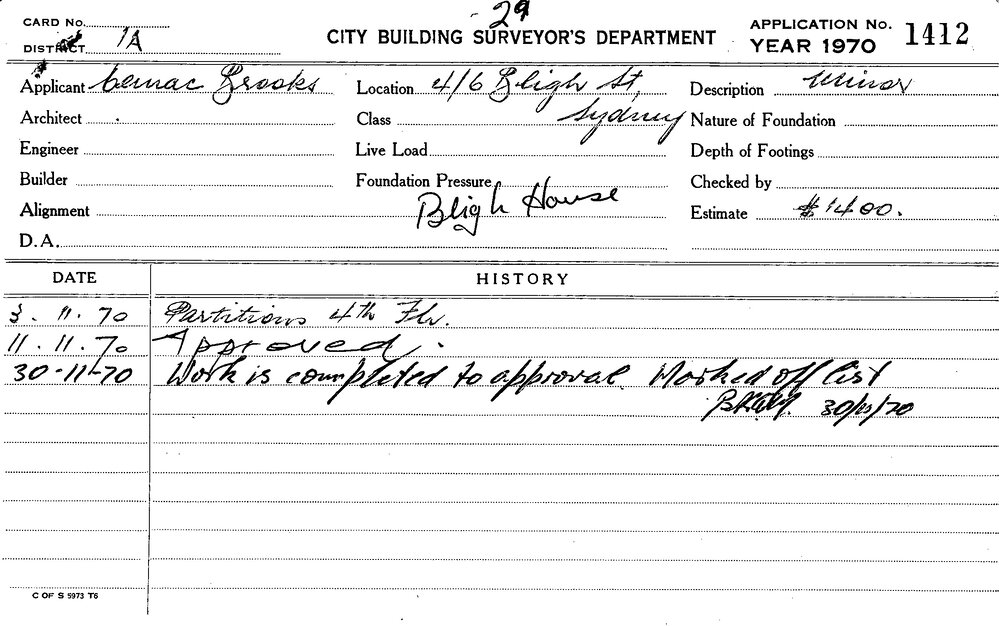 29
CARD No.
DISTRICT 1A
CITY BUILDING SURVEYOR'S DEPARTMENT
APPLICATION No. 1412
YEAR 1970
Applicant Cemac Brooks
Location 4/6 Bligh St, Sydney
Description Minor
Architect
Class
Nature of Foundation
Engineer
Live Load
Depth of Footings
Builder
Foundation Pressure
Checked by
Alignment
Bligh House
Estimate $1400.
D.A.
DATE HISTORY
3. 11. 70 Partitions 4th Flr.
11. 11. 70 Approved.
30-11-70 Work is completed to approval. Marked off list
30/11/70
C OF S 5973 T6